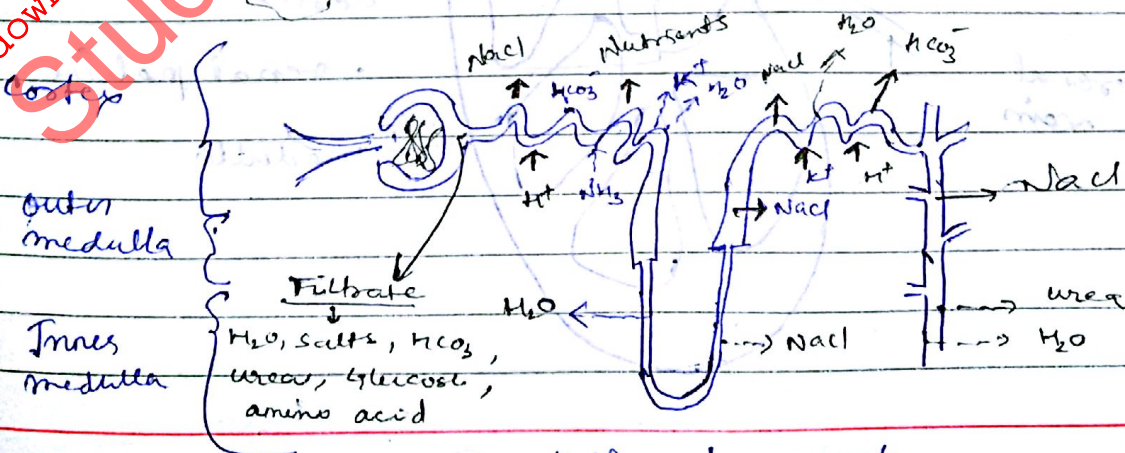 dow
Stu
Cortex
outer
medulla
Inner
medulla
NaCl
HCO3-
Nutrients
K+
H2O
NaCl
H2O
HCO3-
H+
NH3
K+
H+
NaCl
NaCl
Filtrate
H2O, Salts, HCO3,
Urea, Glucose,
amino acid
H2O
NaCl
urea
H2O